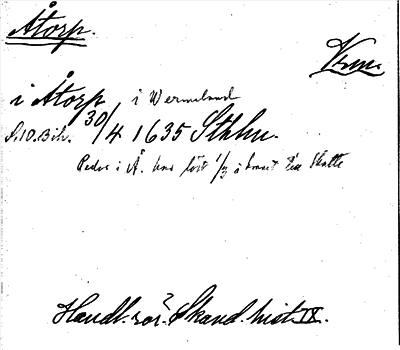 Åtorp.
Vrm.
i Åtorp i Wermeland
S.10.Bih. 30/4 1635 Sthlm.
Peder i Å. har köpt 1/3 i hemmet Skatte
Handl. rör. Skand. hist. IX.